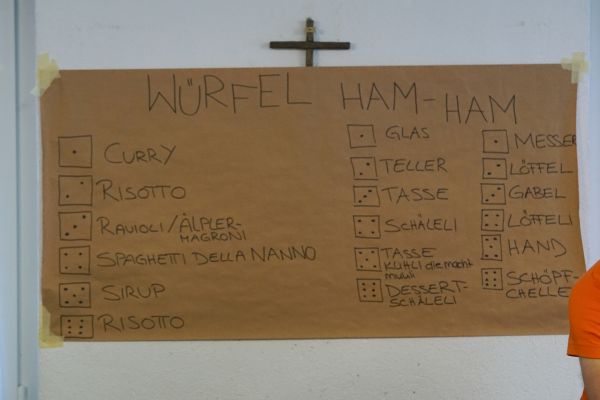 WÜRFEL HAM-HAM
CURRY
RISOTTO
RAVIOLI/ÄLPLER-
MAGRONI
SPAGHETTI DELLA NANNO
SIRUP
RISOTTO
GLAS
TELLER
TASSE
SCHÄLELI
TASSE
KÜHLI die macht
muuh
DESSERT-
SCHÄLELI
MESSER
LÖFFEL
GABEL
LÖFFELI
HAND
SCHÖPF-
CHELLE